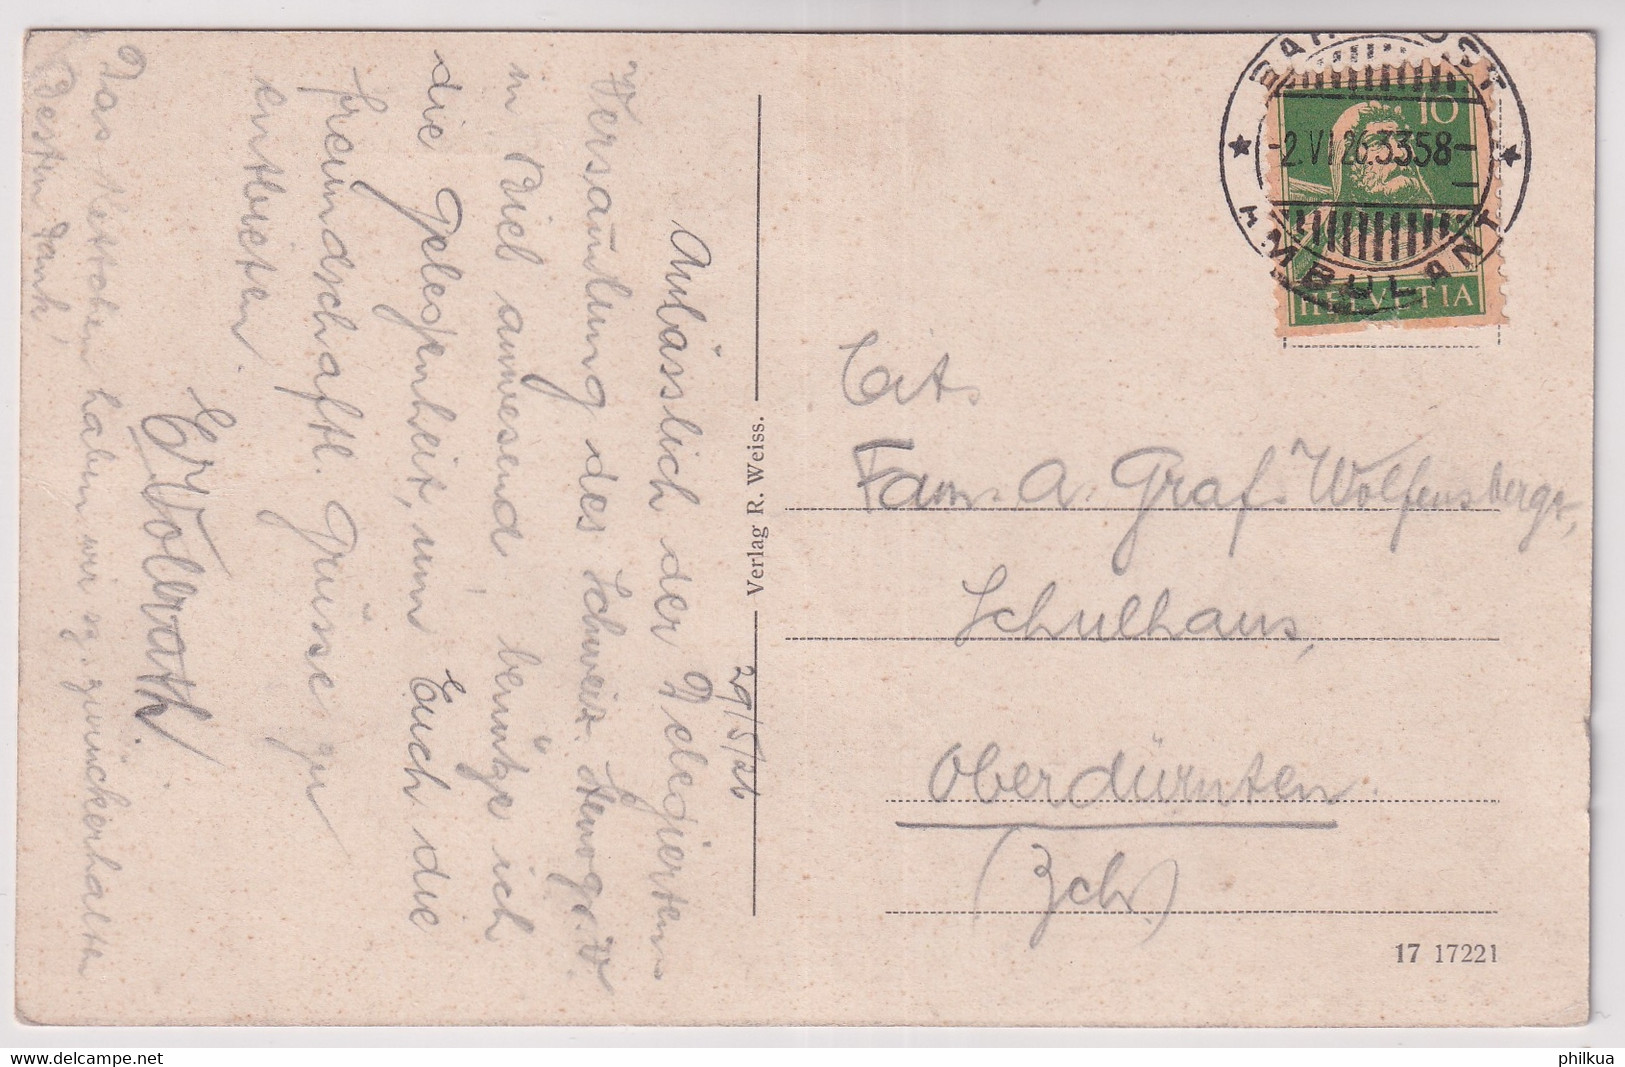 29/5/26
Anlässlich der Delegierten
Versamlung des Schweiz. Stenogr. V
in Biel anwesend, benütze ich
die Gelegenheit, um Euch die
freundschaftl. Grüsse zu
entbieten.
E. Vollrath.
Das Kettchen haben wir sg. zurückerhalten
Besten Dank,
Verlag R. Weiss.
BAHNPOST
-2.VI.26.3358-
AMBULANT
10
HELVETIA
Tit.
Fam. A. Graf-Wolfensberger,
Schulhaus,
Oberdürnten.
(Zch.)
17 17221
philkua